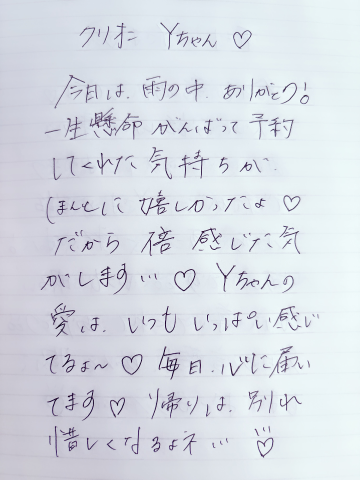 クリオネ Yちゃん♡
今日は、雨の中、ありがとう!
一生懸命 がんばって 予約
してくれた 気持ちが、
ほんとに 嬉しかったよ♡
だから 倍 感じた気
がします…♡ Yちゃんの
愛は、いつも いっぱい感じ
てるよ〜♡ 毎日、心に届い
てます♡ 帰りは、別れ
惜しくなるよネ…♡